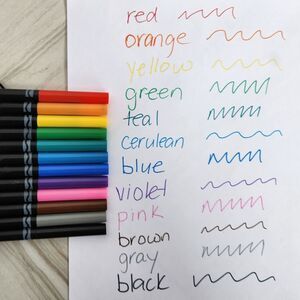 red
orange
yellow
green
teal
cerulean
blue
violet
pink
brown
gray
black